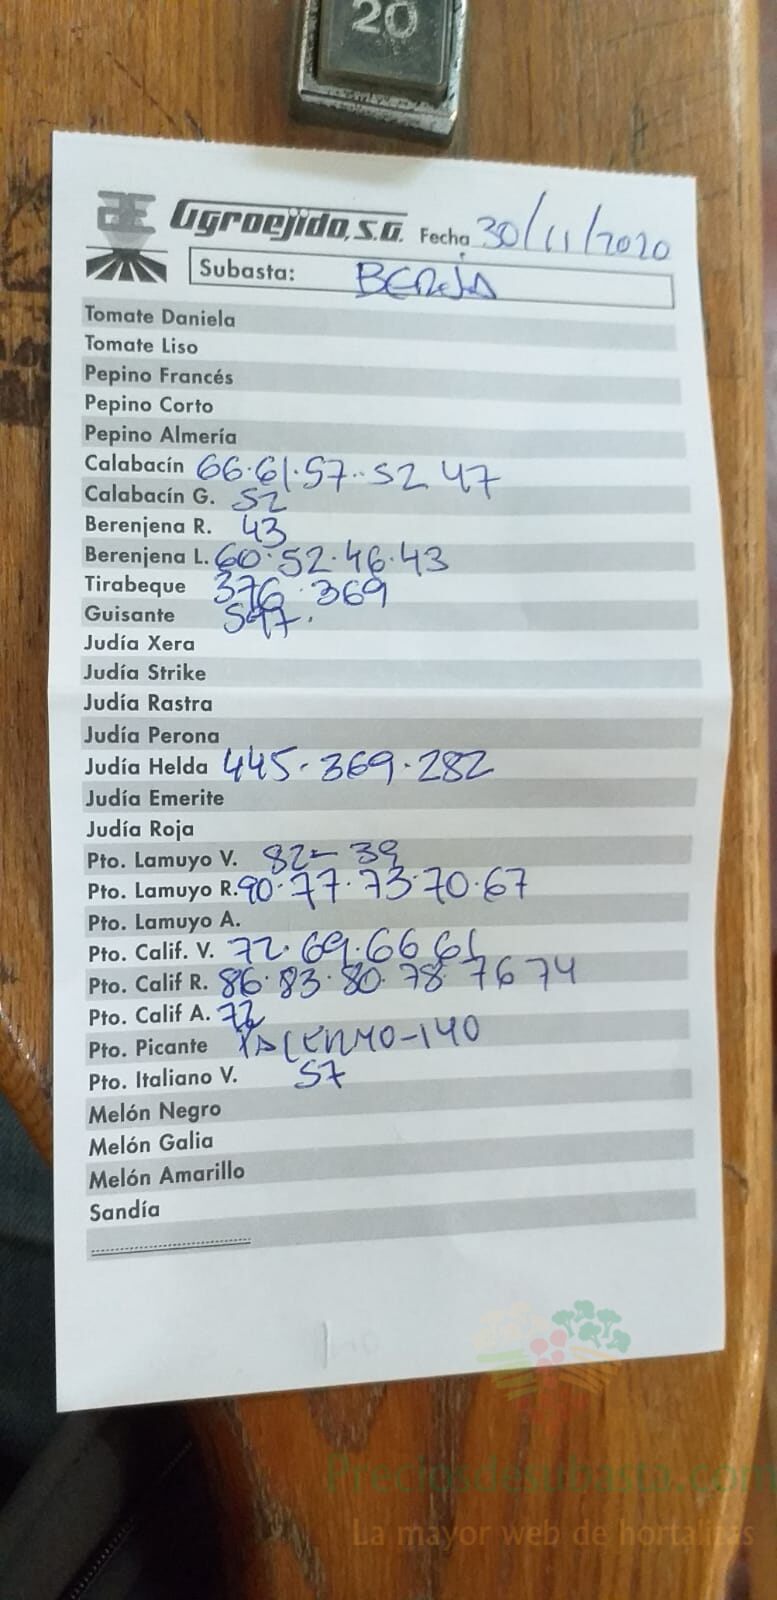 20
Agroejido, S.A. Fecha 30/11/2020
Subasta: BERJA
Tomate Daniela
Tomate Liso
Pepino Francés
Pepino Corto
Pepino Almería
Calabacín 66·61·57··52 47
Calabacín G. 52
Berenjena R. 43
Berenjena L. 60·52·46·43
Tirabeque 376·369
Guisante 597.
Judía Xera
Judía Strike
Judía Rastra
Judía Perona
Judía Helda 445·369·282
Judía Emerite
Judía Roja
Pto. Lamuyo V. 82–39
Pto. Lamuyo R. 90·77·73·70·67
Pto. Lamuyo A.
Pto. Calif. V. 72·69·66 61
Pto. Calif R. 86·83·80·78 76 74
Pto. Calif A. 72
Pto. Picante PALERMO–140
Pto. Italiano V. 57
Melón Negro
Melón Galia
Melón Amarillo
Sandía
Preciosdesubasta.com
La mayor web de hortalizas